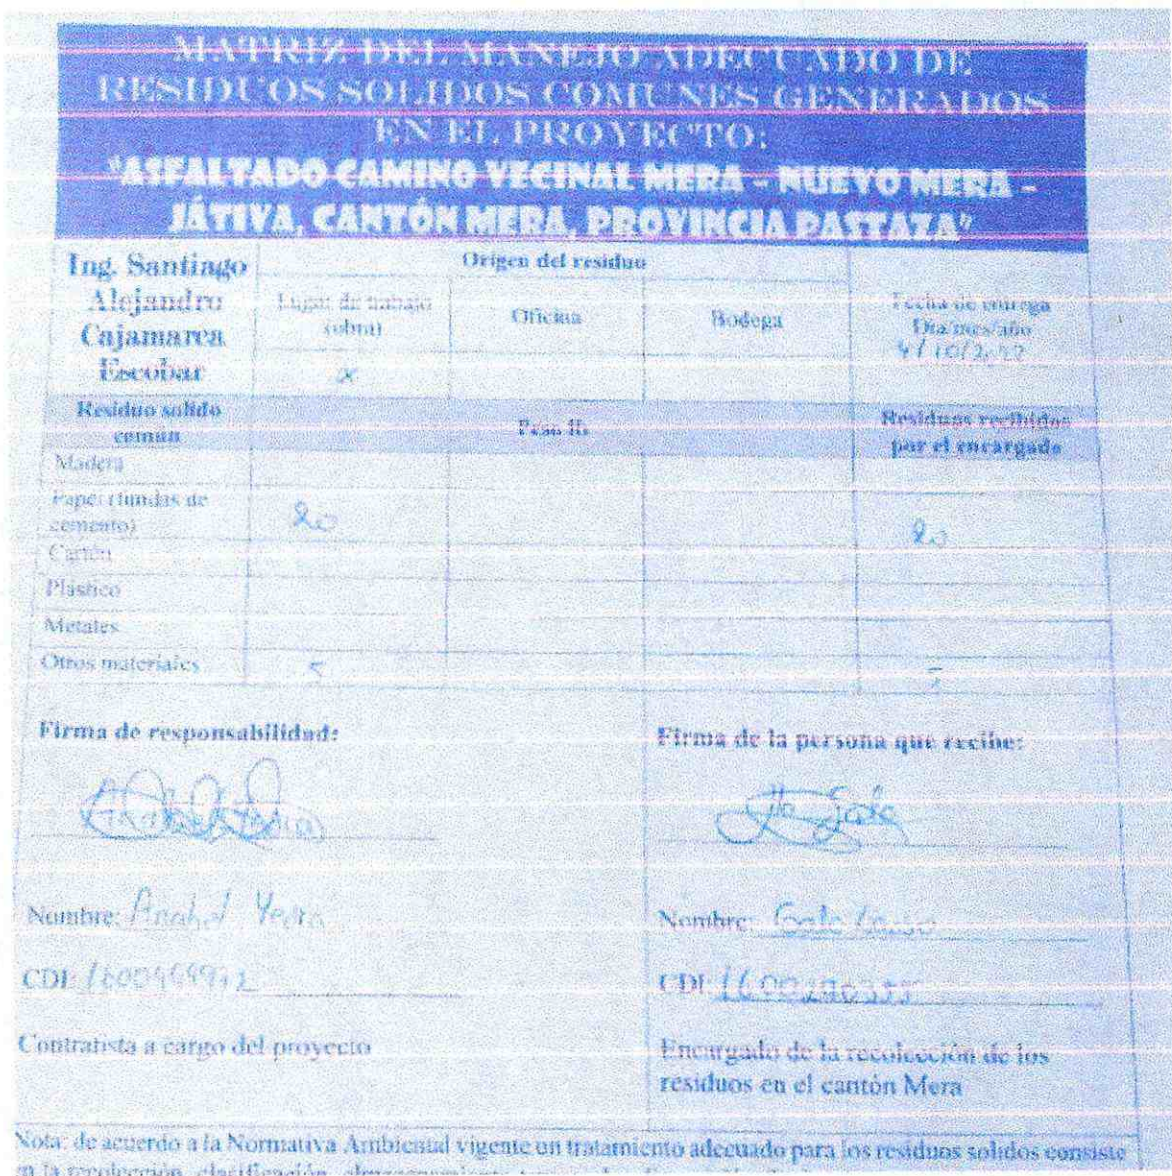 MATRIZ DEL MANEJO ADECUADO DE
RESIDUOS SOLIDOS COMUNES GENERADOS
EN EL PROYECTO:
"ASFALTADO CAMINO VECINAL MERA - NUEVO MERA -
JÁTIVA, CANTÓN MERA, PROVINCIA PASTAZA"
Ing. Santiago
Alejandro
Cajamarca
Escobar
Origen del residuo
Lugar de trabajo
(obra)
Oficina
Bodega
Fecha de entrega
Dia/mes/año
x
Residuo solido
común
Peso lb
Residuos recibidos
por el encargado
Madera
Papel (fundas de
cemento)
20
20
Cartón
Plástico
Metales
Otros materiales
5
5
Firma de responsabilidad:
Firma de la persona que recibe:
Nombre:
Nombre:
CDI:
CDI:
Contratista a cargo del proyecto
Encargado de la recolección de los
residuos en el cantón Mera
Nota: de acuerdo a la Normativa Ambiental vigente un tratamiento adecuado para los residuos solidos consiste